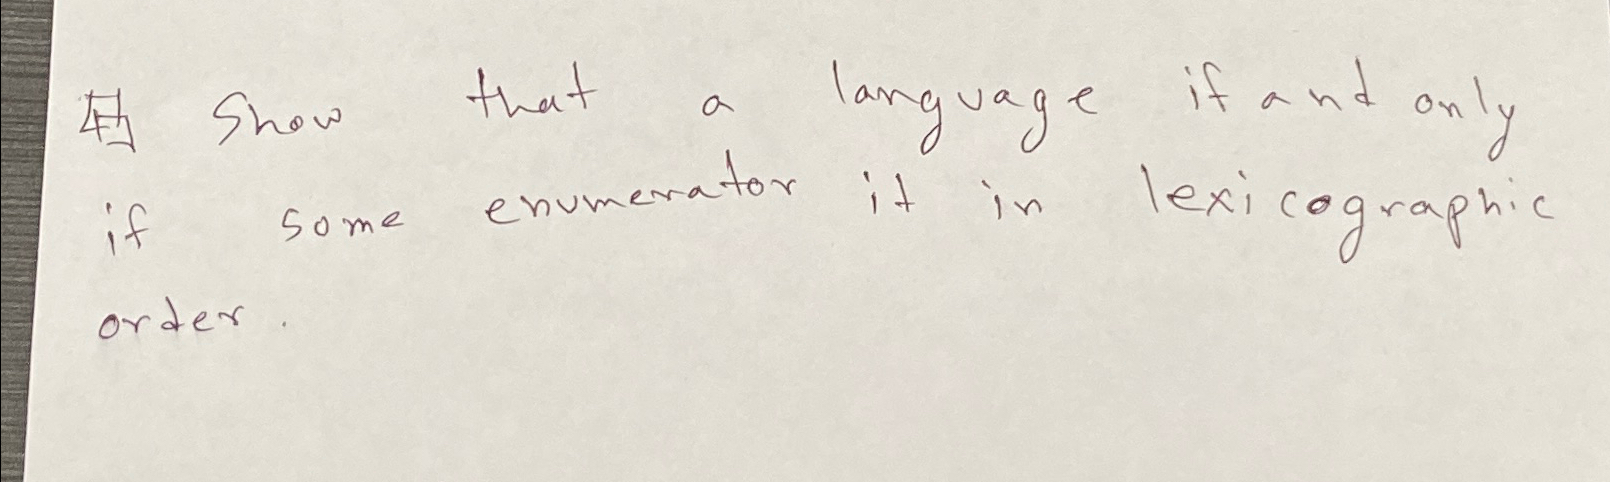 4 Show that a language if and only
if some enumerator it in lexicographic
order.